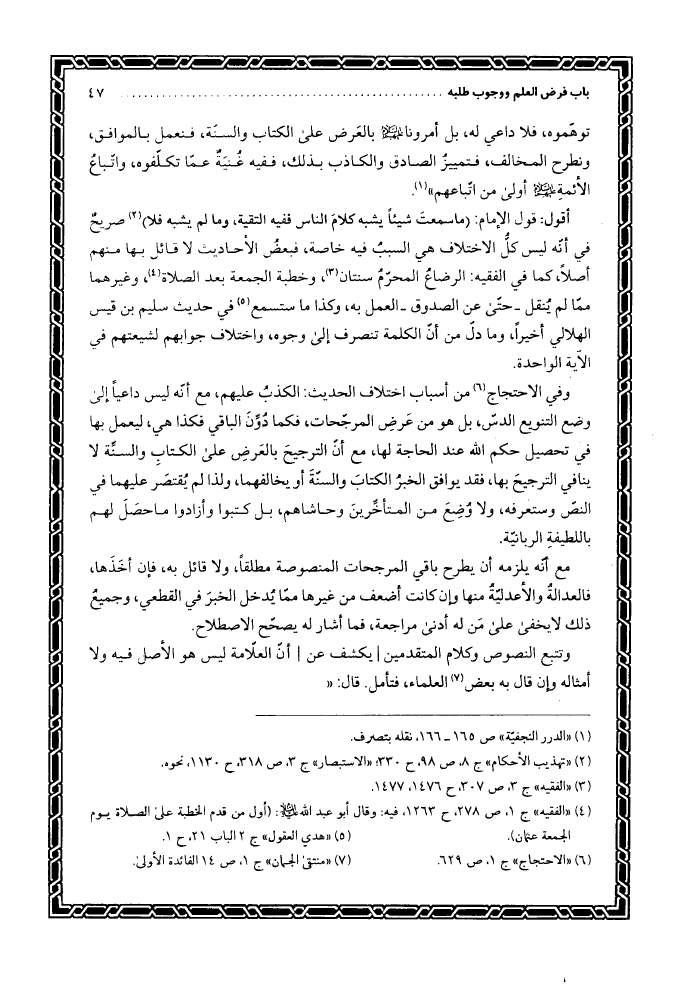 باب فرض العلم ووجوب طلبه ........................................................ ٤٧
توهّموه، فلا داعي له، بل أمرونا ﷺ بالعَرض علىٰ الكتاب والسنّة، فنعمل بالموافق،
ونطرح المخالف، فتمييزُ الصادق والكاذب بذلك، ففيه غُنيَةٌ عمّا تكلّفوه، واتّباعُ
الأئمةِ أولىٰ من اتّباعهم»(١).
أقول: قول الإمام: (ماسمعتَ شيئاً يشبه كلامَ الناس ففيه التقية، وما لم يشبه فلا)(٢) صريحٌ
في أنّه ليس كلُّ الاختلاف هي السببُ فيه خاصة، فبعضُ الأحاديث لا قائل بها منهم
أصلاً، كما في الفقيه: الرضاعُ المحرّمُ سنتان(٣)، وخطبة الجمعة بعد الصلاة(٤)، وغيرهما
ممّا لم يُنقل ـ حتّىٰ عن الصدوق ـ العمل به، وكذا ما ستسمع(٥) في حديث سليم بن قيس
الهلالي أخيراً، وما دلّ من أنّ الكلمة تنصرف إلىٰ وجوه، واختلاف جوابهم لشيعتهم في
الآية الواحدة.
وفي الاحتجاج(٦) من أسباب اختلاف الحديث: الكذبُ عليهم، مع أنّه ليس داعياً إلىٰ
وضع التنويع الدسّ، بل هو من عَرضِ المرجّحات، فكما دُوِّنَ الباقي فكذا هي، ليعمل بها
في تحصيل حكم الله عند الحاجة لها، مع أنّ الترجيحَ بالعَرضِ علىٰ الكتاب والسنّة لا
ينافي الترجيحَ بها، فقد يوافق الخبرُ الكتابَ والسنّةَ أو يخالفهما، ولذا لم يُقتصَر عليهما في
النصّ وستعرفه، ولا وُضِعَ من المتأخّرينَ وحاشاهم، بل كتبوا وأزادوا ماحصَلَ لهم
باللطيفةِ الربانيّة.
مع أنّه يلزمه أن يطرح باقي المرجحات المنصوصة مطلقاً، ولا قائل به، فإن أخَذَها،
فالعدالةُ والأعدليّةُ منها وإن كانت أضعف من غيرها ممّا يُدخل الخبرَ في القطعي، وجميعُ
ذلك لايخفىٰ علىٰ مَن له أدنىٰ مراجعة، فما أشار له يصحّح الاصطلاح.
وتتبع النصوص وكلام المتقدمين | يكشف عن | أنّ العلّامة ليس هو الأصل فيه ولا
أمثاله وإن قال به بعض(٧) العلماء، فتأمل. قال: «
(١) «الدرر النجفيّة» ص ١٦٥ ـ ١٦٦، نقله بتصرف.
(٢) «تهذيب الأحكام» ج ٨، ص ٩٨، ح ٣٣٠؛ «الاستبصار» ج ٣، ص ٣١٨، ح ١١٣٠، نحوه.
(٣) «الفقيه» ج ٣، ص ٣٠٧، ح ١٤٧٦، ١٤٧٧.
(٤) «الفقيه» ج ١، ص ٢٧٨، ح ١٢٦٣، فيه: وقال أبو عبد الله: (أول من قدم الخطبة علىٰ الصلاة يوم
الجمعة عثمان). (٥) «هدي العقول» ج ٢ الباب ٢١، ح ١.
(٦) «الاحتجاج» ج ١، ص ٦٢٩. (٧) «منتقىٰ الجمان» ج ١، ص ١٤ الفائدة الأولىٰ.